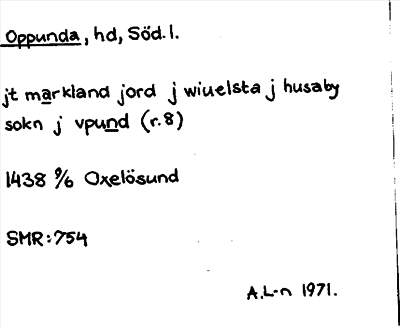 Oppunda, hd, Söd. l.
jt markland jord j wiuelsta j husaby
sokn j vpund (r. 8)
1438 9/6 Oxelösund
SMR: 754
A.L-n 1971.